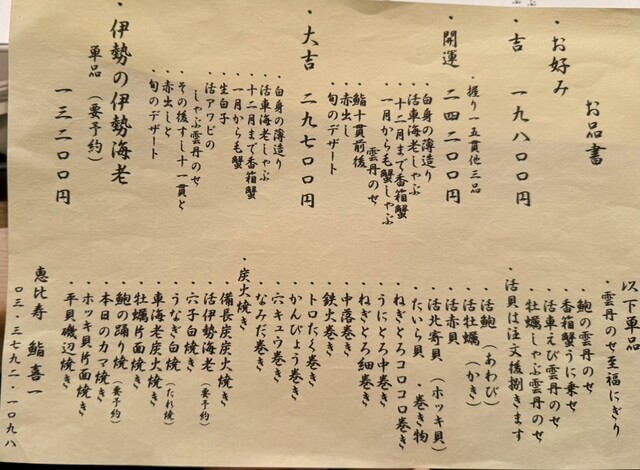 お品書
・お好み
・吉　一九八〇〇円
・握り一五貫他三品
・開運　二四二〇〇円
・白身の薄造り
・活車海老しゃぶ
・十二月まで香箱蟹
・一月から毛蟹しゃぶ
雲丹のせ
・鮨十貫前後
・赤出し
・旬のデザート
・大吉　二九七〇〇円
・白身の薄造り
・活車海老しゃぶ
・十二月まで香箱蟹
・一月から毛蟹
・生白子
・活アワビの
しゃぶ雲丹のせ
・その後すし十一貫と
・赤出しと
・旬のデザート
・伊勢の伊勢海老
単品（要予約）
一三二〇〇円
以下単品
・雲丹のせ至福にぎり
・鮑の雲丹のせ
・香箱蟹うに乗せ
・活車えび雲丹のせ
・牡蠣しゃぶ雲丹のせ
・活貝は注文後捌きます
・活鮑（あわび）
・活牡蠣（かき）
・活赤貝
・活北寄貝（ホッキ貝）
・たいら貝・巻き物
・ねぎとろコロコロ巻き
・うにとろ中巻き
・ねぎとろ細巻き
・中落巻き
・鉄火巻き
・トロたく巻き
・かんぴょう巻き
・穴キュウ巻き
・なみだ巻き
・炭火焼き
・備長炭炭火焼き
・活伊勢海老（要予約）
・穴子白焼き
・うなぎ白焼（たれ焼）
・車海老炭火焼き
・牡蠣片面焼き
・鮑の踊り焼（要予約）
・本日のカマ焼き（要予約）
・ホッキ貝片面焼き
・平貝磯辺焼き
恵比寿　鮨　喜一
〇三・三七九二・一〇九八